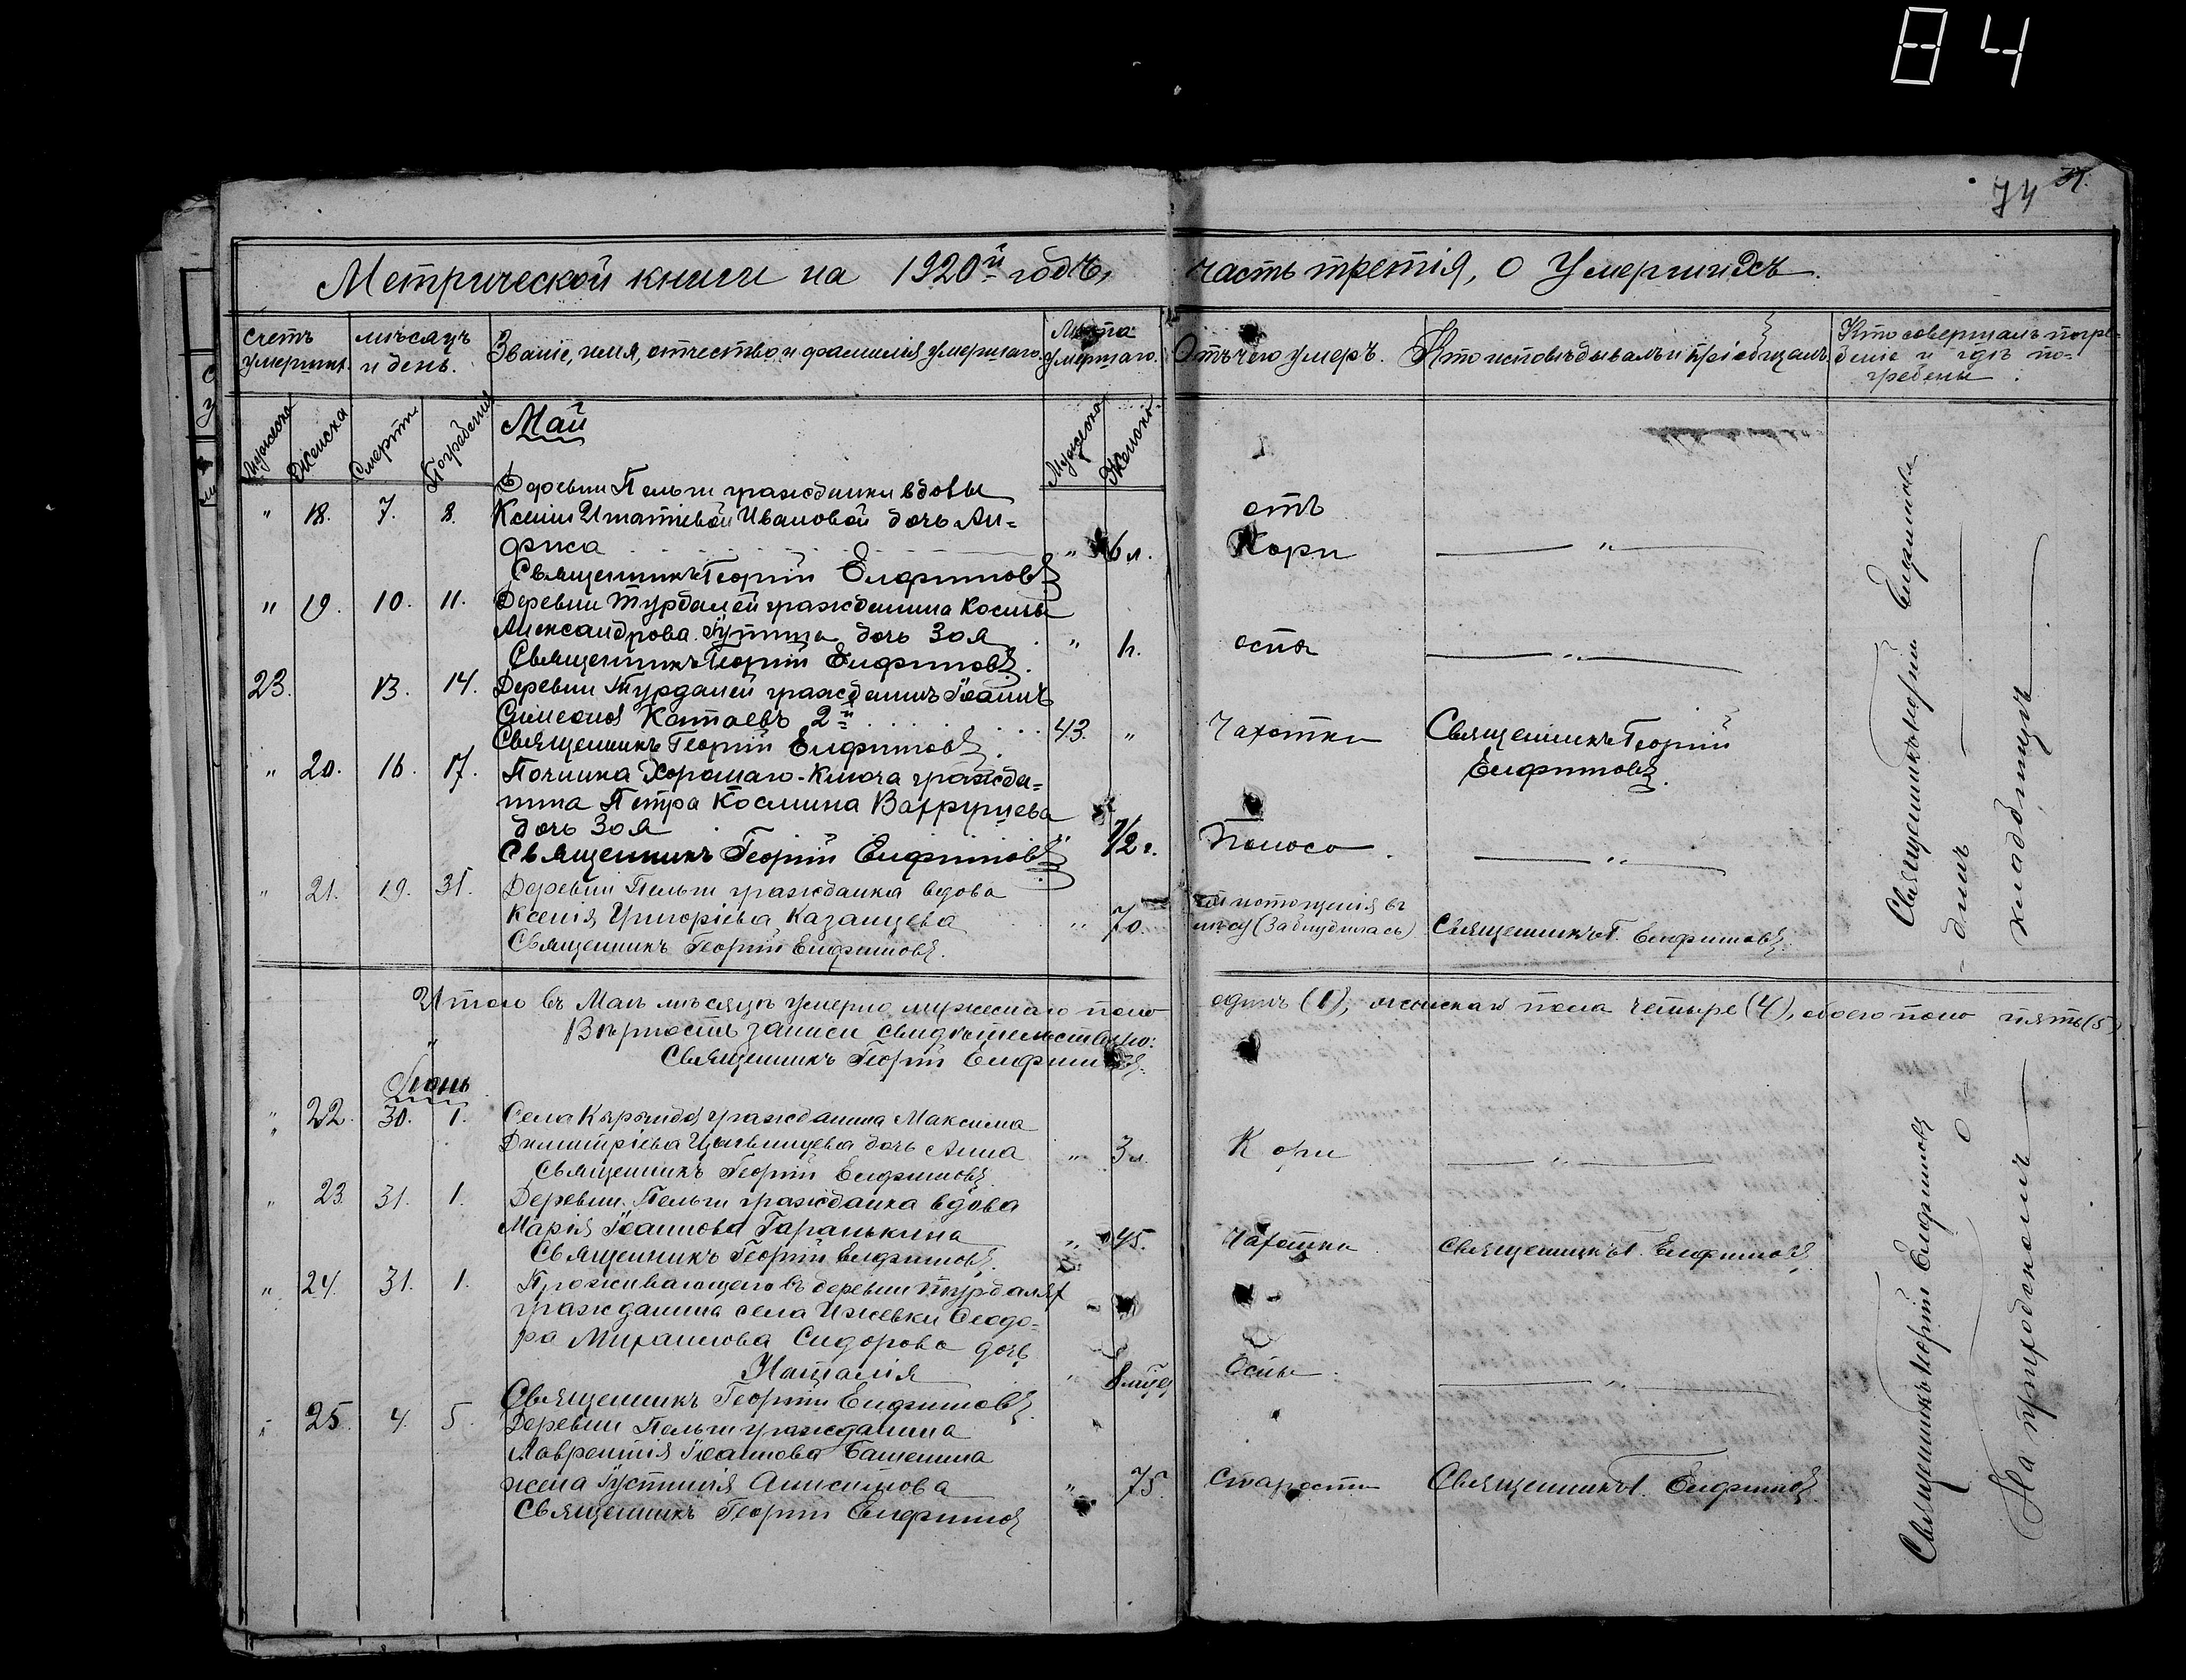 84
74
Метрической книги на 1920й годъ,
часть третія, о Умершихъ.
счетъ умершихъ.
мѣсяцъ и день.
Званіе, имя, отчество и фамилія умершаго.
Лѣта умершаго.
Отъ чего умеръ.
Кто исповѣдывалъ и пріобщалъ.
Кто совершалъ погре-
беніе и гдѣ по-
гребены.
Мужеска
Женска
Смерти
Погребенія
Мужеска
Женска
Май
Деревни Пельги гражданки вдовы
" 18. 7. 8. Ксеніи Игнатіевой Ивановой дочь Ан- отъ
фиса " 6 л. Кори — " —
Священникъ Георгій Елфимовъ
" 19. 10. 11. Деревни Турдалей гражданина Космы
Александрова дочь Зоя " оспы — " —
Священникъ Георгій Елфимовъ.
23. 13. 14. Деревни Турдалей гражданинъ Іоаннъ
Симеоновъ Катаевъ 2й 43. " Чахотки Священникъ Георгій
Священникъ Георгій Елфимовъ. Елфимовъ.
" 20. 16. 17. Починка Хорошаго-Ключа гражда-
нина Петра Космина
дочь Зоя " 1/2 г. Поноса — " —
Священникъ Георгій Елфимовъ
" 21. 19. 31. Деревни Пельги гражданка вдова
Ксенія Григорієва Казанцева " 70. истощенія въ
лѣсу (Заблудилась) Священникъ Г. Елфимовъ.
Священникъ Георгій Елфимовъ.
Священникъ Георгій Елфимовъ
Итого въ Маѣ мѣсяцѣ умерло мужескаго пола одинъ (1), женскаго пола четыре (4), обоего пола пять (5)
Вѣрность записи свидѣтельствую:
Священникъ Георгій Елфимовъ.
Іюнь
" 22. 30. 1. Села Кырынды гражданина Максима
Димитріева дочь Анна " 3 л. Кори — " —
Священникъ Георгій Елфимовъ.
" 23. 31. 1. Деревни Пельги гражданка вдова
Марія Іоаннова Гаранькина " 45. Чахотки Священникъ Г. Елфимовъ.
Священникъ Георгій Елфимовъ.
" 24. 31. 1. Проживающего въ деревни Турдалях
гражданина села Ижевки Феодо-
ра Михаилова Сидорова дочь
Наталія " 8 мцев Оспы — " —
Священникъ Георгій Елфимовъ.
" 25. 4. 5. Деревни Пельги гражданина
Лаврентія Іоаннова Башенина
жена Іустинія Анисимова " 75. Старости Священникъ Г. Елфимовъ
Священникъ Георгій Елфимовъ
Священникъ Георгій Елфимовъ
На приходскомъ
кладбищѣ